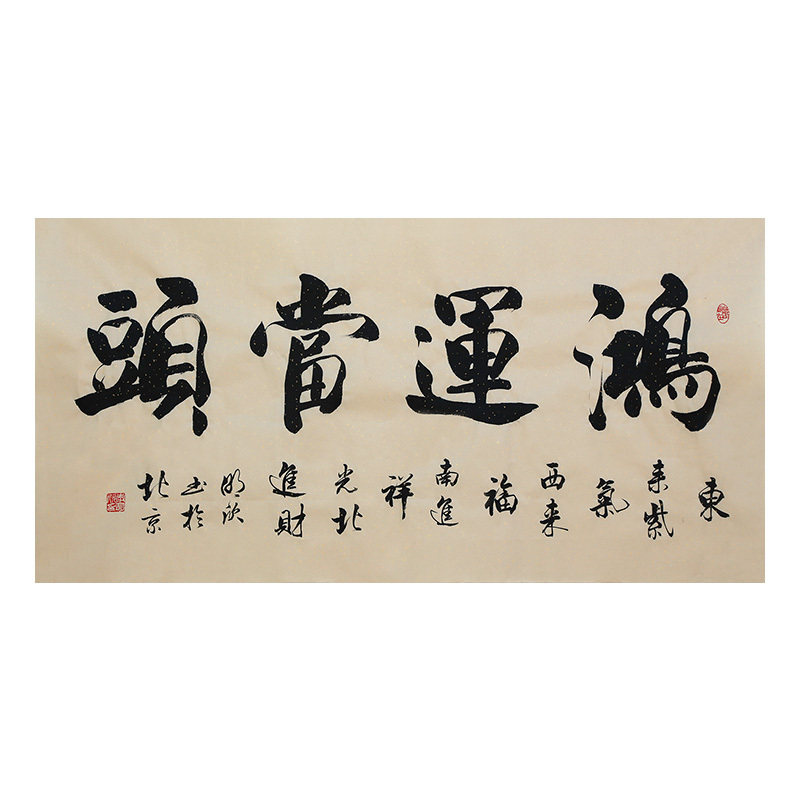 鴻運當頭
東
来紫
氣
西来
福
南進
祥
光北
進財
明
书於
北京